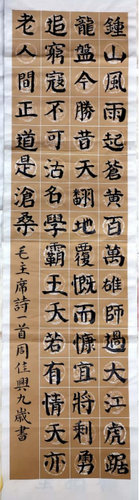 鍾山風雨起蒼黃百萬雄師過大虎踞
龍盤今勝昔天翻地覆慨而慷宜將剩勇
追窮寇不可沽名學霸王天若有情天亦
老人間正道是滄桑
毛主席詩一首周佳興九歲書